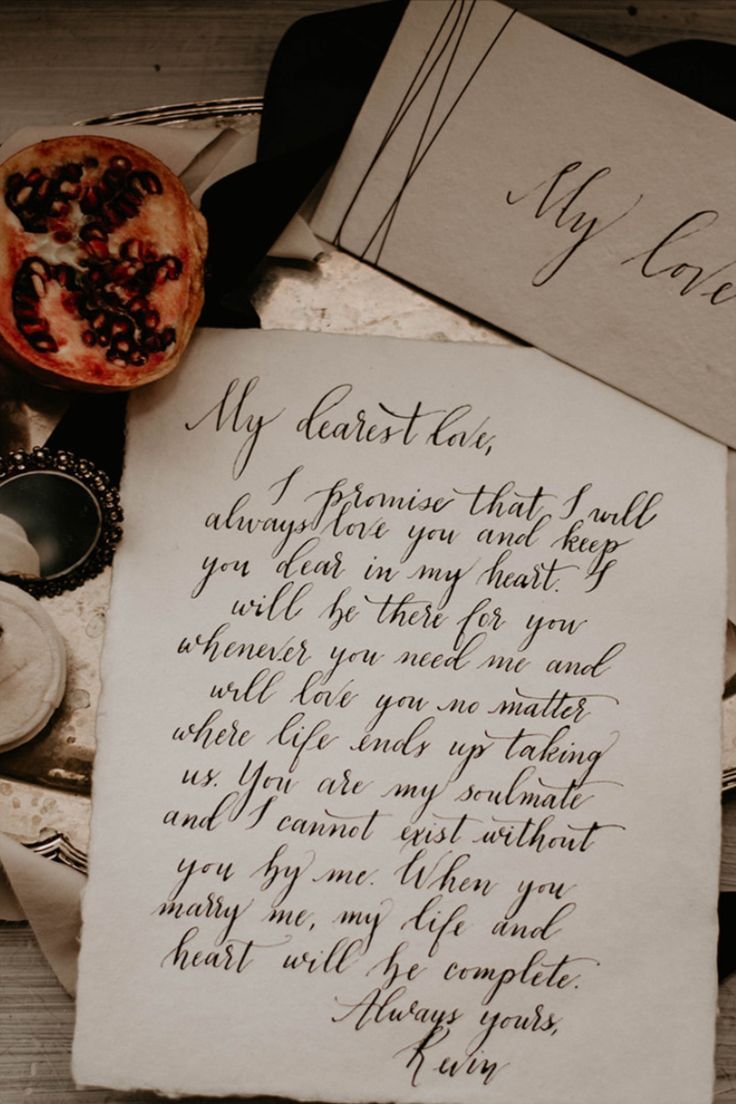 My love
My dearest love,
I promise that I will
always love you and keep
you dear in my heart. I
will be there for you
whenever you need me and
will love you no matter
where life ends up taking
us. You are my soulmate
and I cannot exist without
you by me. When you
marry me, my life and
heart will be complete.
Always yours,
Kevin